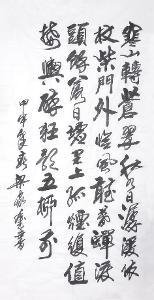 寒山轉蒼翠秋水日潺湲倚
杖柴門外臨風聽暮蟬渡
頭餘落日墟里上孤煙復值
接輿醉狂歌五柳前
甲午書